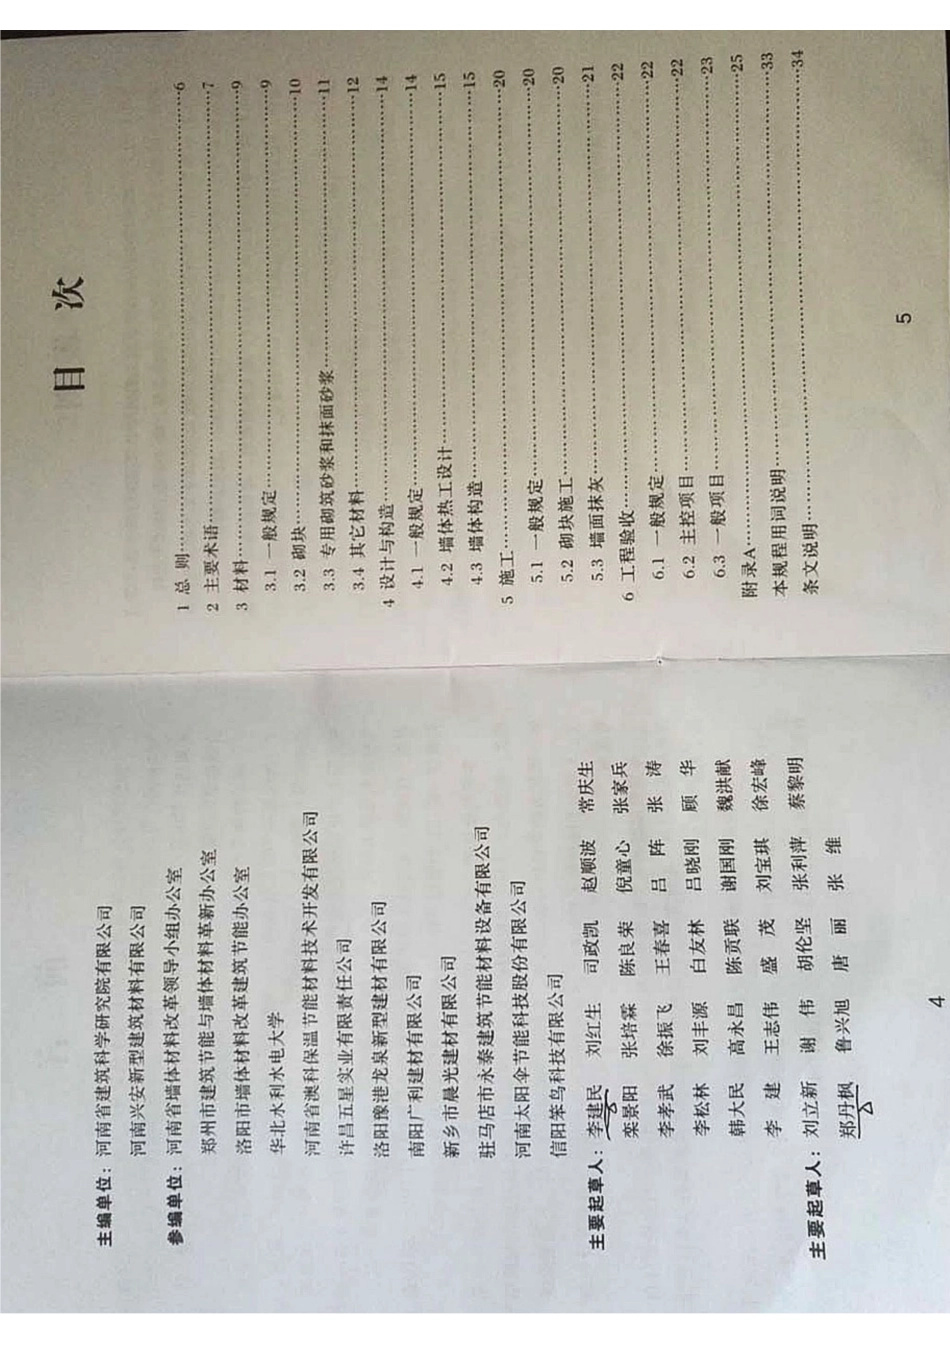 主编单位：河南省建筑科学研究院有限公司
河南兴安新型建筑材料有限公司
参编单位：河南省墙体材料改革领导小组办公室
郑州市建筑节能与墙体材料革新办公室
洛阳市墙体材料改革建筑节能办公室
华北水利水电大学
河南省澳科保温节能材料技术开发有限公司
许昌五星实业有限责任公司
洛阳豫港龙泉新型建材有限公司
南阳广利建材有限公司
新乡市晨光建材有限公司
驻马店市永泰建筑节能材料设备有限公司
河南太阳伞节能科技股份有限公司
信阳笨鸟科技有限公司
主要起草人：李建民 刘红生 司政凯 赵顺波 常庆生
栾景阳 张培霖 陈良荣 倪童心 张家兵
李孝武 徐振飞 王春喜 吕 阵 张 涛
李松林 刘丰源 白友林 吕晓刚 顾 华
韩大民 高永昌 陈贡联 谢国刚 魏洪献
李 建 王志伟 盛 茂 刘宝琪 徐宏峰
刘立新 谢 伟 胡伦坚 张利萍 蔡黎明
主要起草人：郑丹枫 鲁兴旭 唐 丽 张 维
4
目 次
1 总 则……………6
2 主要术语……………7
3 材料……………9
3.1 一般规定……………9
3.2 砌块……………10
3.3 专用砌筑砂浆和抹面砂浆……………11
3.4 其它材料……………12
4 设计与构造……………14
4.1 一般规定……………14
4.2 墙体热工设计……………15
4.3 墙体构造……………15
5 施工……………20
5.1 一般规定……………20
5.2 砌块施工……………20
5.3 墙面抹灰……………21
6 工程验收……………22
6.1 一般规定……………22
6.2 主控项目……………22
6.3 一般项目……………23
附录A……………25
本规程用词说明……………33
条文说明……………34
5